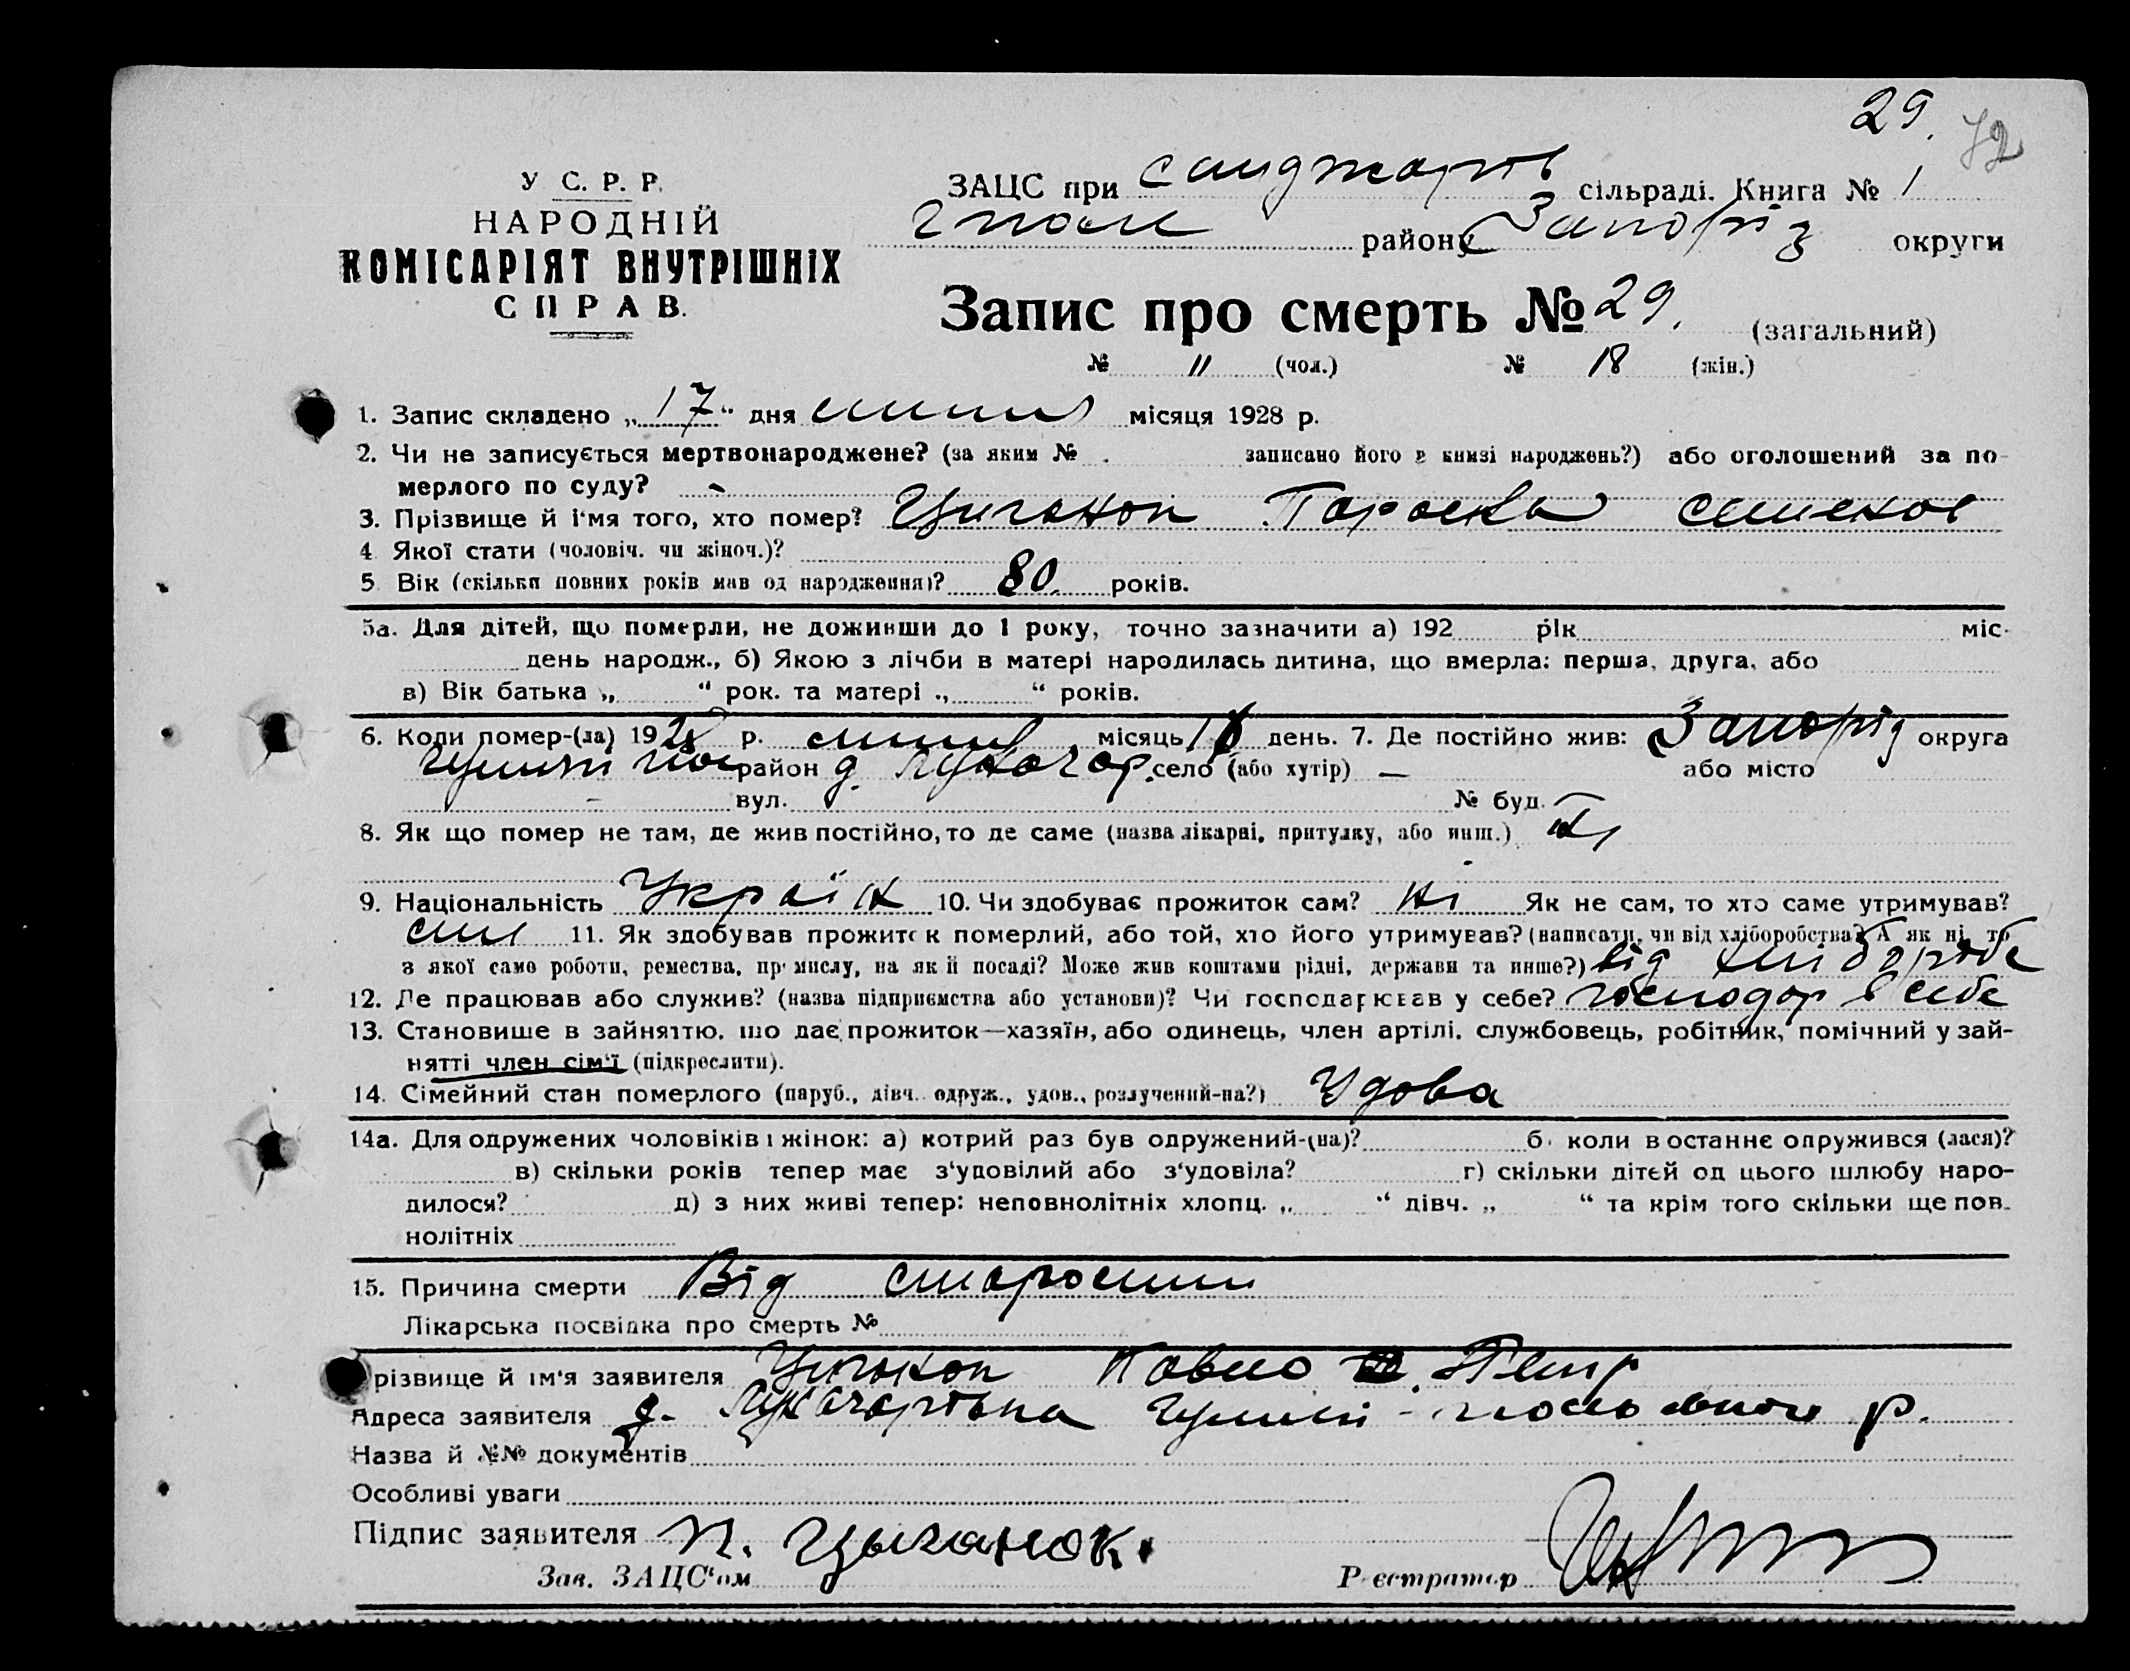 29.
72
У С. Р. Р.
НАРОДНІЙ
КОМІСАРІЯТ ВНУТРІШНІХ
СПРАВ.
ЗАЦС при Санджарів сільраді. Книга № 1
району Запоріз округи
Запис про смерть № 29. (загальний)
№ 11 (чол.) № 18 (жін.)
1. Запис складено „17“ дня липня місяця 1928 р.
2. Чи не записується мертвонароджене? (за яким № записано його в книзі народжень?) або оголошений за по-
мерлого по суду? -
3. Прізвище й і'мя того, хто помер? Циганок Параска
4 Якої стати (чоловіч. чи жіноч.)?
5 Вік (скільки повних років мав од народження)? 80. років.
5а. Для дітей, що померли, не доживши до 1 року, точно зазначити а) 192 рік міс.
день народж., б) Якою з лічби в матері народилась дитина, що вмерла: перша, друга, або
в) Вік батька „ “ рок. та матері „ “ років.
6. Коли помер-(ла) 1928 р. липня місяць день. 7. Де постійно жив: Запоріз округа
район д. село (або хутір) — або місто
- вул. № буд.
8. Як що помер не там, де жив постійно, то де саме (назва лікарні, притулку, або инш.)
9. Національність Україн 10. Чи здобуває прожиток сам? ні Як не сам, то хто саме утримував?
син 11. Як здобував прожиток померлий, або той, хто його утримував? (написати, чи від хліборобства? А як ні, то
з якої само роботи, ремества, промислу, на якій посаді? Може жив коштами рідні, держави та инше?) від хліборобс
12. Де працював або служив? (назва підприємства або установи)? Чи господарював у себе? господар в себе
13. Становище в зайняттю, що дає прожиток—хазяїн, або одинець, член артілі, службовець, робітник, помічний у зай-
нятті член сім'ї (підкреслити).
14. Сімейний стан померлого (паруб., дівч. одруж., удов., розлучений-на?) Удова
14а. Для одружених чоловіків і жінок: а) котрий раз був одружений-(на)? б) коли в останнє одружився (лася)?
в) скільки років тепер має з'удовілий або з'удовіла? г) скільки дітей од цього шлюбу наро-
дилося? д) з них живі тепер: неповнолітніх хлопц. „ “ дівч. „ “ та крім того скільки ще пов-
нолітніх
15. Причина смерти Від старости
Лікарська посвідка про смерть №
різвище й ім'я заявителя Циганок Павло Петр
Адреса заявителя д. р.
Назва й №№ документів
Особливі уваги
Підпис заявителя П. Цыганок.
Зав. ЗАЦС'ом Реєстратор